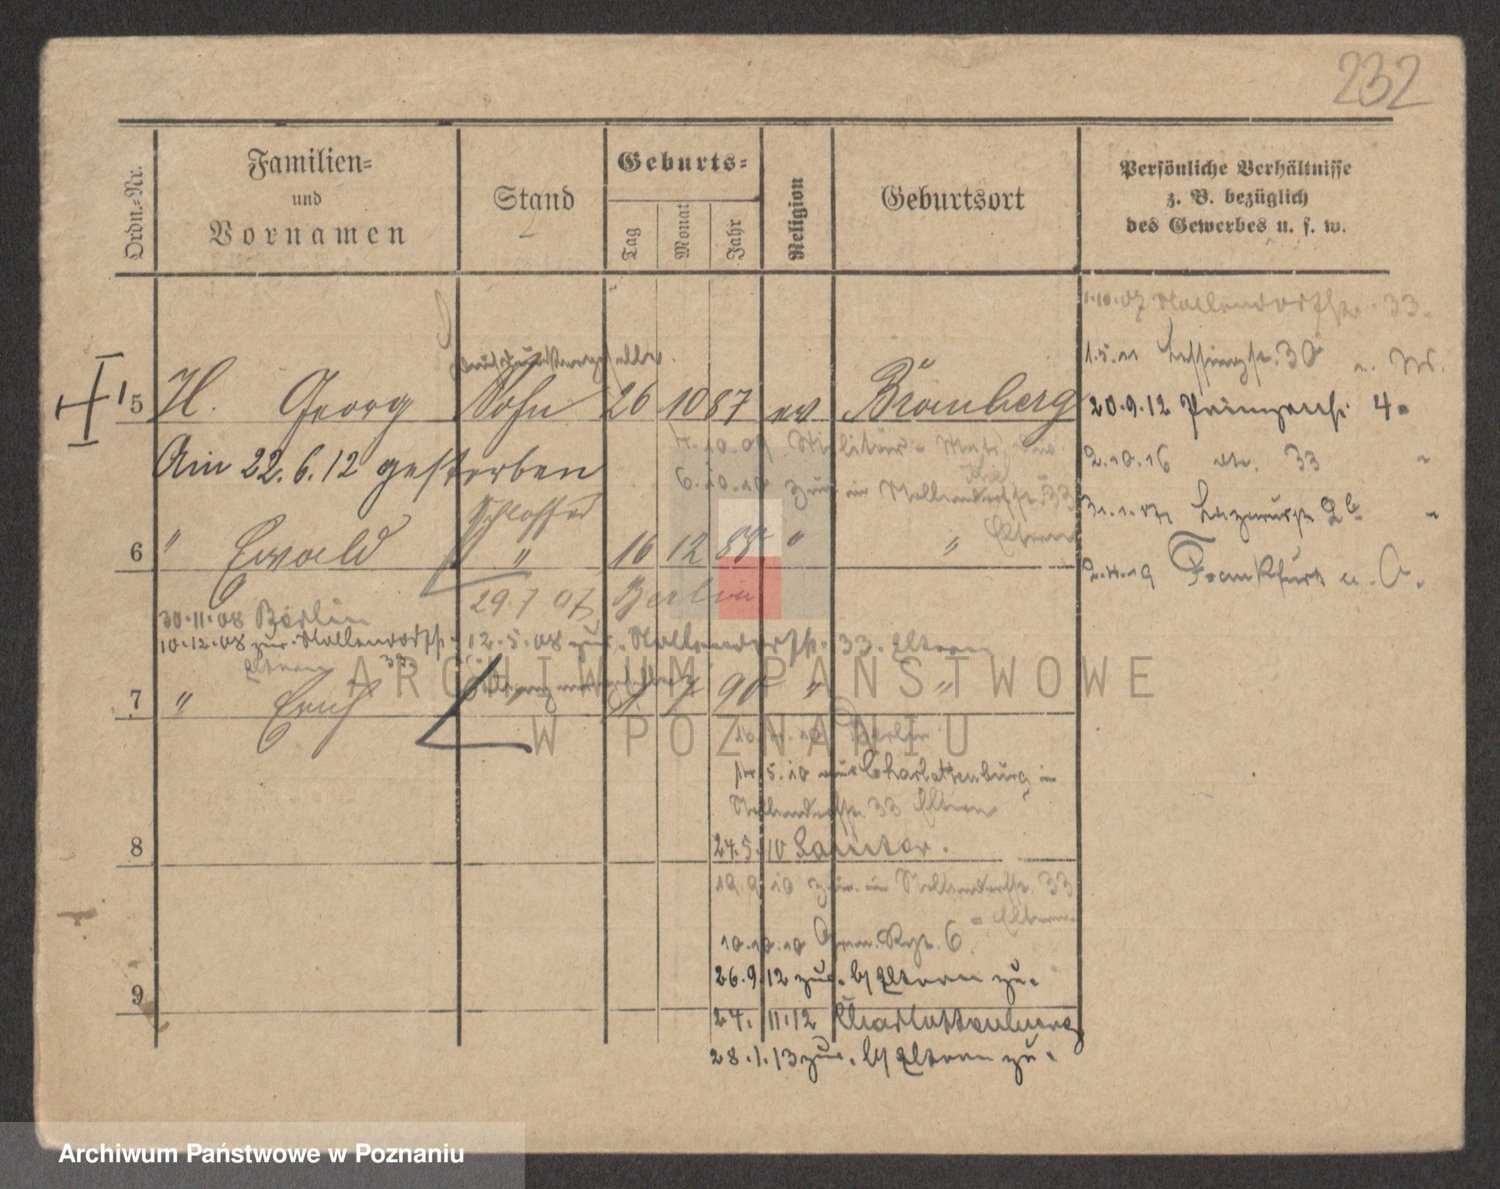 232
Ordn.-Nr.
Familien-
und
Vornamen
Stand
Geburts-
Tag
Monat
Jahr
Religion
Geburtsort
Persönliche Verhältnisse
z. B. bezüglich
des Gewerbes u. s. w.
1.10.07 Nollendorfstr. 33.
1.5.11 Lessingstr. 30
5 H. Georg Sohn 26 10 87 ev Bromberg
20.9.12 Prinzenstr. 4.
Am 22.6.12 gestorben
10.09 Militär
2.10.16 33
6.10.10 zur. in Nollendorfstr. 33
Eltern
Schlosser
6 " Ewald " 16 12 88 " "
2.4.19 Frankfurt a. O.
29.7.07 Berlin
30.11.08 Berlin
10.12.08 zur. Nollendorfstr. 33 Eltern
12.5.08 zur. Nollendorfstr. 33. Eltern
7 " Erich 7 90 " "
Berlin
5.10 aus Charlottenburg in
Nollendorfstr. 33 Eltern
8
24.5.10
19.9.10 zur. in Nollendorfstr. 33
Eltern
10.10.10 Gren. Rgt. 6.
9
26.9.12 zur. bei Eltern zu.
24.11.12 Charlottenburg
28.1.13 zur. bei Eltern zu.
ARCHIWUM PAŃSTWOWE
W POZNANIU
Archiwum Państwowe w Poznaniu